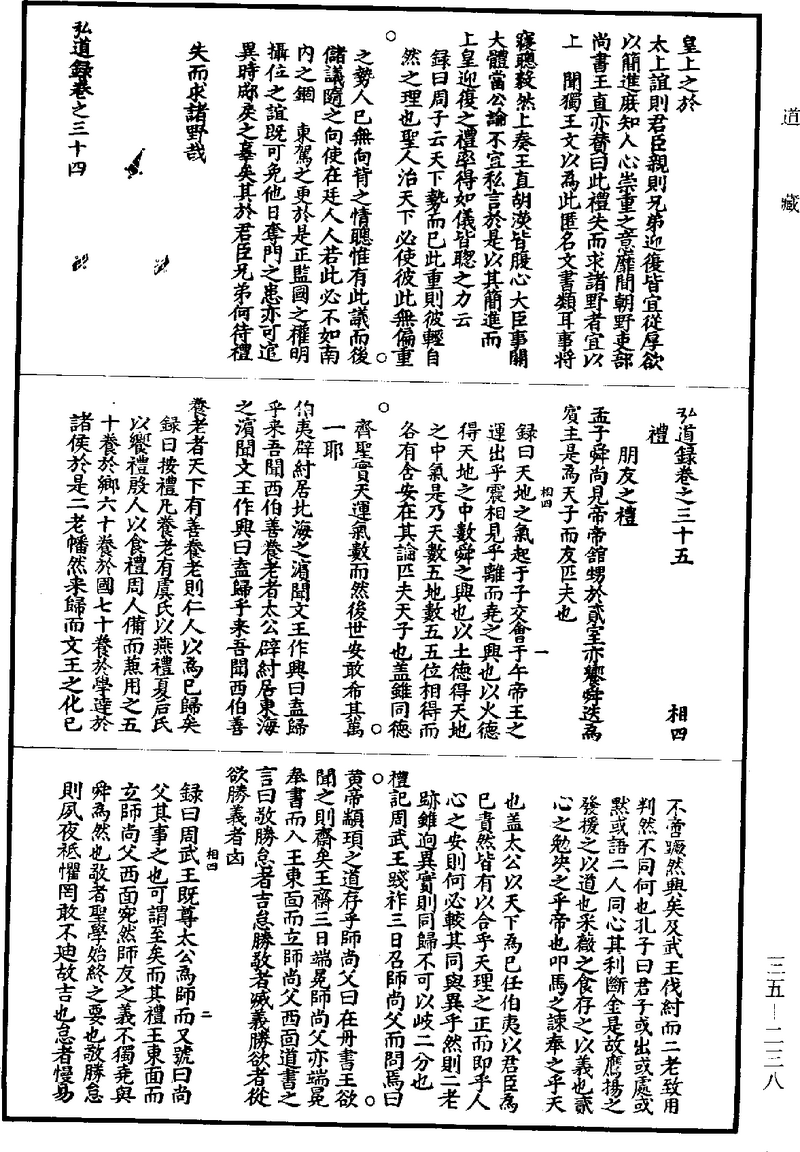 道藏
皇上之於
太上誼則君臣親則兄弟迎復皆宜從厚欲
以簡進庶知人心崇重之意靡間朝野吏部
尚書王直亦贊曰此禮失而求諸野者宜以
上聞獨王文以為此匿名文書類耳事將
寢聰毅然上奏王直胡濙皆腹心大臣事關
大體當公論不宜私言於是以其簡進而
上皇迎復之禮率得如儀皆聰之力云
錄曰周子云天下勢而已此重則彼輕自
然之理也聖人治天下必使彼此無偏重
之勢人已無向背之情聰惟有此議而後
儲議隨之向使在廷人人若此必不如南
內之錮東駕之更於是正監國之權明
攝位之誼既可免他日奪門之患亦可追
異時郕戾之辜矣其於君臣兄弟何待禮
失而求諸野哉
弘道錄卷之三十四
弘道錄卷之三十五 相四
禮
朋友之禮
孟子舜尚見帝帝館甥於貳室亦饗舜迭為
賓主是為天子而友匹夫也
錄曰天地之氣起于子交會于午帝王之
相四 一
運出乎震相見乎離而堯之興也以火德
得天地之中數舜之興也以土德得天地
之中氣是乃天數五地數五五位相得而
各有含安在其論匹夫天子也蓋雖同德
齊聖實天運氣數而然後世安敢希其萬
一耶
伯夷辟紂居北海之濱聞文王作興曰盍歸
乎來吾聞西伯善養老者太公辟紂居東海
之濱聞文王作興曰盍歸乎來吾聞西伯善
養老者天下有善養老則仁人以為已歸矣
錄曰按禮凡養老有虞氏以燕禮夏后氏
以饗禮殷人以食禮周人備而兼用之五
十養於鄉六十養於國七十養於學達於
諸侯於是二老幡然來歸而文王之化已
不啻蹶然興矣及武王伐紂而二老致用
判然不同何也孔子曰君子或出或處或
默或語二人同心其利斷金是故鷹揚之
發援之以道也采薇之食存之以義也貳
心之勉決之乎帝也叩馬之諫奉之乎天
也蓋太公以天下為已任伯夷以君臣為
已責然皆有以合乎天理之正而即乎人
心之安則何必較其同與異乎然則二老
跡雖迥異實則同歸不可以歧二分也
禮記周武王踐祚三日召師尚父而問焉曰
黃帝顓頊之道存乎師尚父曰在丹書王欲
聞之則齋矣王齋三日端冕師尚父亦端冕
奉書而入王東面而立師尚父西面道書之
言曰敬勝怠者吉怠勝敬者滅義勝欲者從
欲勝義者凶
相四 二
錄曰周武王既尊太公為師而又號曰尚
父其事之也可謂至矣而其禮王東面而
立師尚父西面宛然師友之義不獨堯與
舜為然也敬者聖學始終之要也敬勝怠
則夙夜祗懼罔敢不迪故吉也怠者慢易
三五—二三八